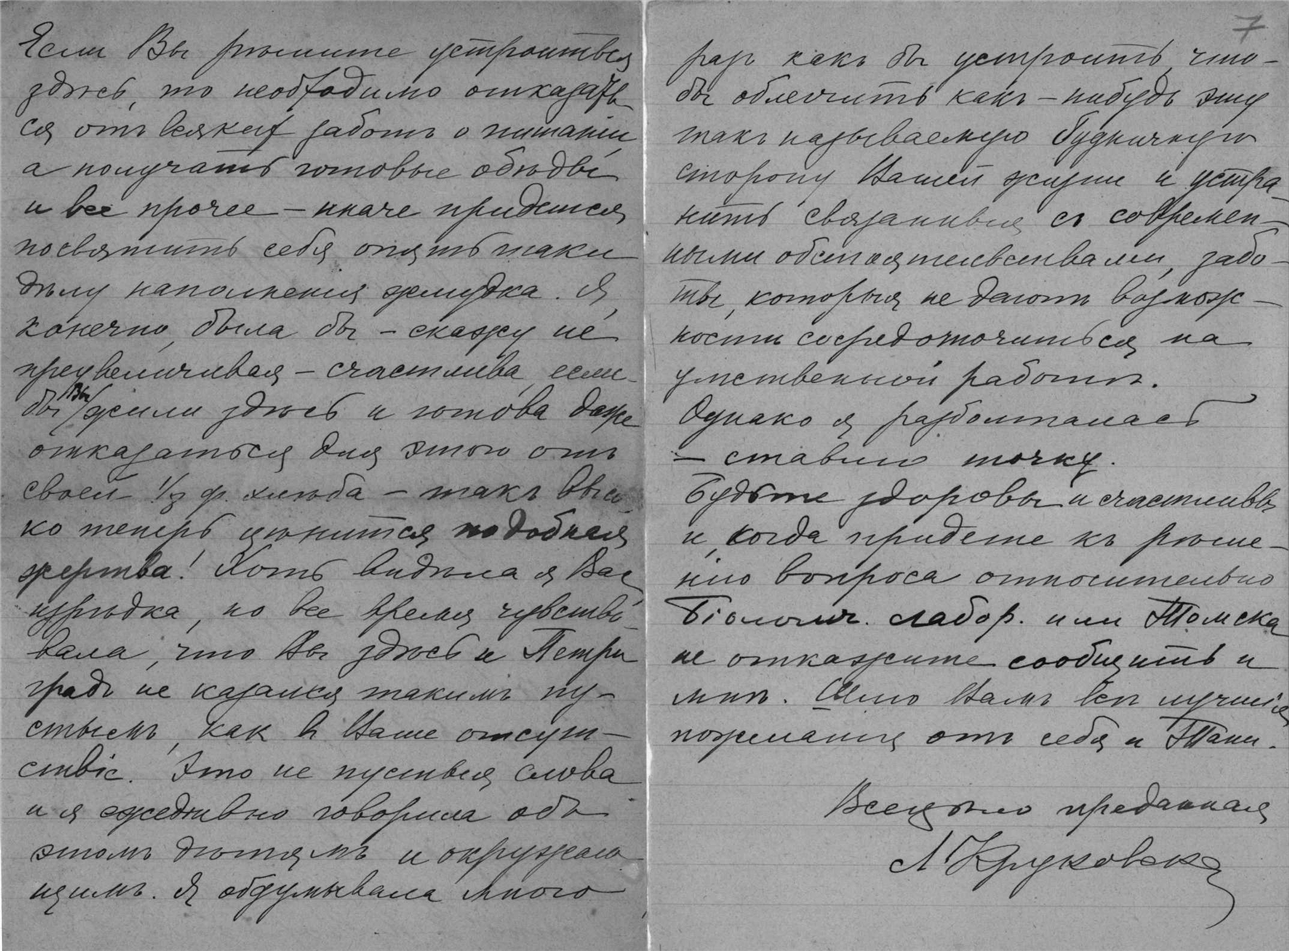 Если Вы рѣшите устроиться
здѣсь, то необходимо отказать-
ся отъ всякихъ заботъ о питаніи,
а получать готовые обѣды
и все прочее – иначе придется
посвятить себя опять таки
дѣлу наполненія желудка. Я,
конечно, была бы – скажу не
преувеличивая – счастлива, если-
бы Вы жили здѣсь и готова даже
отказаться для этого отъ
своей ⅓ ф. хлѣба – такъ высо
ко теперь цѣнится подобная
жертва! Хоть видѣла я Вас
изрѣдка, но все время чувство
вала, что Вы здѣсь и Петро
градъ не казался такимъ пу-
стымъ, как в Ваше отсут-
ствіе. Это не пустыя слова
и я ежедневно говорила объ
этомъ дѣтямъ и окружаю-
щимъ. Я обдумывала много
7
разъ какъ бы устроить, что-
бы облегчить какъ-нибудь эту
такъ называемую будничную
сторону Вашей жизни и устра
нить связанныя съ современ-
ными обстоятельствами, забо-
ты, которыя не даютъ возмож-
ности сосредоточиться на
умственной работѣ.
Однако я разболталась
– ставлю точку.
Будьте здоровы и счастливы
и, когда придете къ рѣше-
нію вопроса относительно
Біологич. лабор. или Томска
не откажите сообщить и
мнѣ. Шлю Вамъ всѣ лучшія
пожеланія отъ себя и Тани.
Всецѣло преданная
Л Круковска